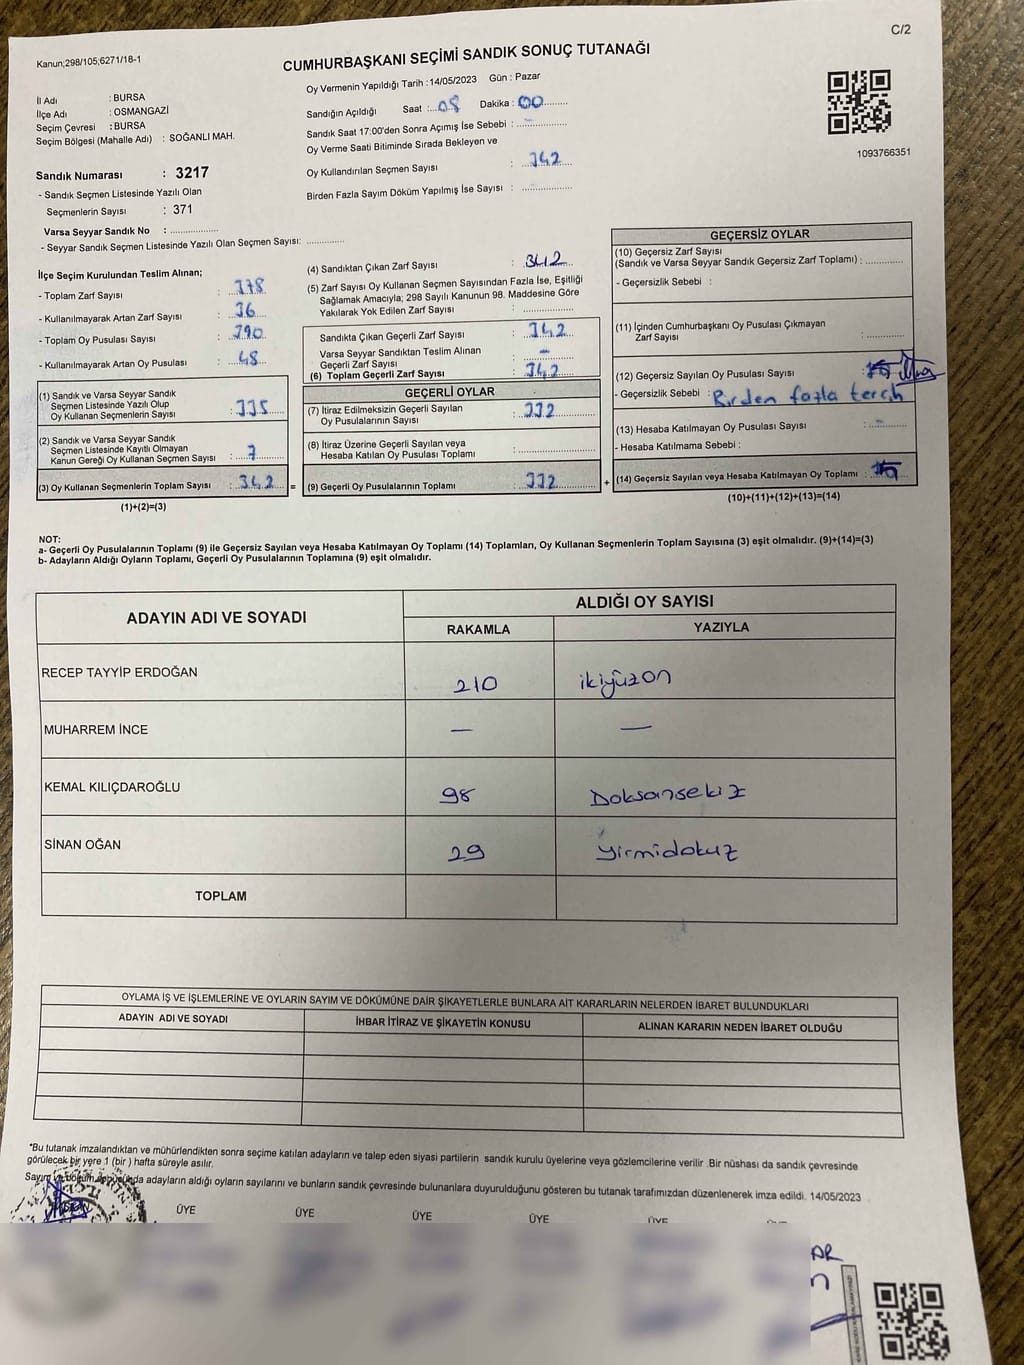 C/2
Kanun;298/105;6271/18-1
CUMHURBAŞKANI SEÇİMİ SANDIK SONUÇ TUTANAĞI
Oy Vermenin Yapıldığı Tarih :14/05/2023 Gün : Pazar
İl Adı : BURSA
İlçe Adı : OSMANGAZİ
Seçim Çevresi : BURSA
Seçim Bölgesi (Mahalle Adı) : SOĞANLI MAH.
Sandığın Açıldığı Saat :...08 Dakika : 00
Sandık Saat 17:00'den Sonra Açımış İse Sebebi : -
Oy Verme Saati Bitiminde Sırada Bekleyen ve
Oy Kullandırılan Seçmen Sayısı : 342
Birden Fazla Sayım Döküm Yapılmış İse Sayısı :
1093766351
Sandık Numarası : 3217
- Sandık Seçmen Listesinde Yazılı Olan
Seçmenlerin Sayısı : 371
Varsa Seyyar Sandık No :
- Seyyar Sandık Seçmen Listesinde Yazılı Olan Seçmen Sayısı:
İlçe Seçim Kurulundan Teslim Alınan;
- Toplam Zarf Sayısı : 378
- Kullanılmayarak Artan Zarf Sayısı : 36
- Toplam Oy Pusulası Sayısı : 390
- Kullanılmayarak Artan Oy Pusulası : 48
(1) Sandık ve Varsa Seyyar Sandık
Seçmen Listesinde Yazılı Olup
Oy Kullanan Seçmenlerin Sayısı : 335
(2) Sandık ve Varsa Seyyar Sandık
Seçmen Listesinde Kayıtlı Olmayan
Kanun Gereği Oy Kullanan Seçmen Sayısı : 7
(3) Oy Kullanan Seçmenlerin Toplam Sayısı : 342 =
(1)+(2)=(3)
(4) Sandıktan Çıkan Zarf Sayısı : 342
(5) Zarf Sayısı Oy Kullanan Seçmen Sayısından Fazla İse, Eşitliği
Sağlamak Amacıyla; 298 Sayılı Kanunun 98. Maddesine Göre
Yakılarak Yok Edilen Zarf Sayısı :
Sandıkta Çıkan Geçerli Zarf Sayısı : 342
Varsa Seyyar Sandıktan Teslim Alınan
Geçerli Zarf Sayısı : -
(6) Toplam Geçerli Zarf Sayısı : 342
GEÇERLİ OYLAR
(7) İtiraz Edilmeksizin Geçerli Sayılan
Oy Pusulasının Sayısı : 332
(8) İtiraz Üzerine Geçerli Sayılan veya
Hesaba Katılan Oy Pusulası Toplamı :
(9) Geçerli Oy Pusulalarının Toplamı : 332 +
GEÇERSİZ OYLAR
(10) Geçersiz Zarf Sayısı
(Sandık ve Varsa Seyyar Sandık Geçersiz Zarf Toplamı) :
- Geçersizlik Sebebi :
(11) İçinden Cumhurbaşkanı Oy Pusulası Çıkmayan
Zarf Sayısı :
(12) Geçersiz Sayılan Oy Pusulası Sayısı :
- Geçersizlik Sebebi : Birden fazla tercih
(13) Hesaba Katılmayan Oy Pusulası Sayısı : -
- Hesaba Katılmama Sebebi :
(14) Geçersiz Sayılan veya Hesaba Katılmayan Oy Toplamı :
(10)+(11)+(12)+(13)=(14)
NOT:
a- Geçerli Oy Pusulalarının Toplamı (9) ile Geçersiz Sayılan veya Hesaba Katılmayan Oy Toplamı (14) Toplamları, Oy Kullanan Seçmenlerin Toplam Sayısına (3) eşit olmalıdır. (9)+(14)=(3)
b- Adayların Aldığı Oyların Toplamı, Geçerli Oy Pusulalarının Toplamına (9) eşit olmalıdır.
ADAYIN ADI VE SOYADI
ALDIĞI OY SAYISI
RAKAMLA YAZIYLA
RECEP TAYYİP ERDOĞAN 210 ikiyüzon
MUHARREM İNCE — —
KEMAL KILIÇDAROĞLU 98 Doksansekiz
SİNAN OĞAN 29 yirmidokuz
TOPLAM
OYLAMA İŞ VE İŞLEMLERİNE VE OYLARIN SAYIM VE DÖKÜMÜNE DAİR ŞİKAYETLERLE BUNLARA AİT KARARLARIN NELERDEN İBARET BULUNDUKLARI
ADAYIN ADI VE SOYADI İHBAR İTİRAZ VE ŞİKAYETİN KONUSU ALINAN KARARIN NEDEN İBARET OLDUĞU
*Bu tutanak imzalandıktan ve mühürlendikten sonra seçime katılan adayların ve talep eden siyasi partilerin sandık kurulu üyelerine veya gözlemcilerine verilir .Bir nüshası da sandık çevresinde
görülecek bir yere 1 (bir ) hafta süreyle asılır.
Sayım ve adayların aldığı oyların sayılarını ve bunların sandık çevresinde bulunanlara duyurulduğunu gösteren bu tutanak tarafımızdan düzenlenerek imza edildi. 14/05/2023
ÜYE ÜYE ÜYE ÜYE ÜYE